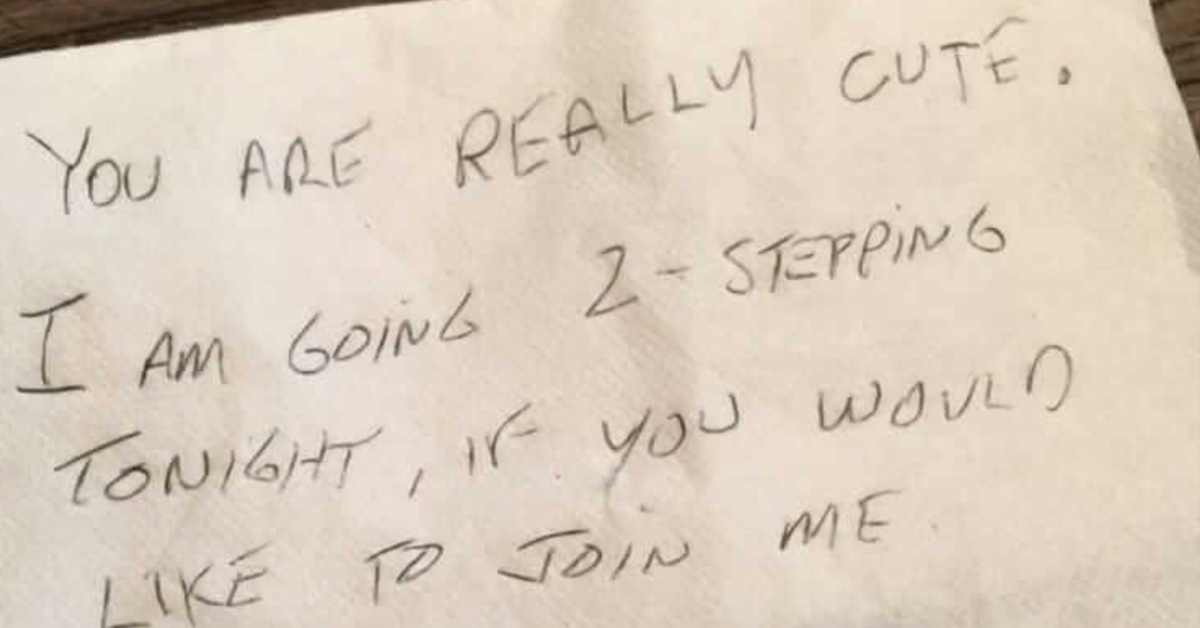 YOU ARE REALLY CUTE.
I AM GOING 2-STEPPING
TONIGHT, IF YOU WOULD
LIKE TO JOIN ME.